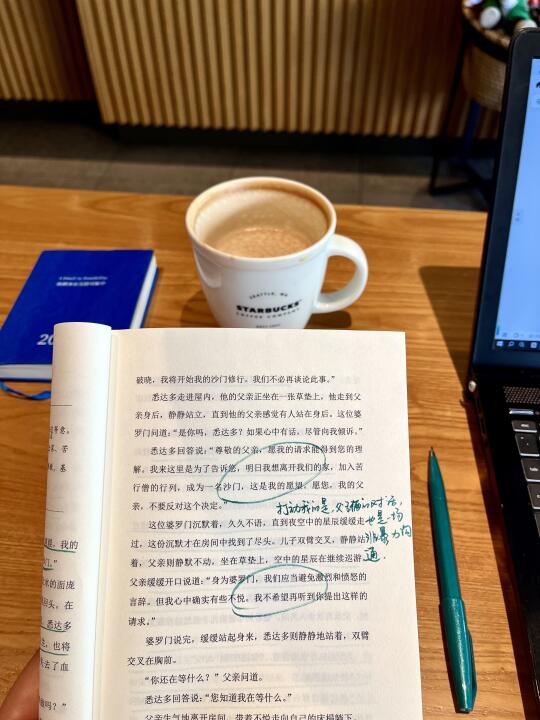 SEATTLE, WA
STARBUCKS
COFFEE COMPANY
20
破晓，我将开始我的沙门修行。我们不必再谈论此事。”
悉达多走进屋内，他的父亲正坐在一张草垫上，他走到父
亲身后，静静站立，直到他的父亲感觉有人站在身后。这位婆
罗门问道：“是你吗，悉达多？如果心中有话，尽管向我倾诉。”
悉达多回答说：“尊敬的父亲，愿我的请求能得到您的理
解。我来这里是为了告诉您，明日我想离开我们的家，加入苦
行僧的行列，成为一名沙门，这是我的愿望。愿您，我的父
亲，不要反对这个决定。”
打动我的是，父子俩的对话，
也是一场
非暴力沟
通.
这位婆罗门沉默着，久久不语，直到夜空中的星辰缓缓走
过，这份沉默才在房间中找到了尽头。儿子双臂交叉，静静站
着，父亲则静默不动，坐在草垫上，空中的星辰在继续巡游。
父亲缓缓开口说道：“身为婆罗门，我们应当避免激烈和愤怒的
言辞。但我心中确实有些不悦。我不希望再听到你提出这样的
请求。”
婆罗门说完，缓缓站起身来，悉达多则静静地站着，双臂
交叉在胸前。
“你还在等什么？”父亲问道。
悉达多回答说：“您知道我在等什么。”
父亲生气地离开房间，带着不悦走向自己的床榻躺下。